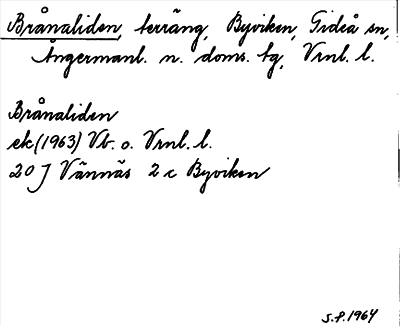 Brånaliden, terräng, Byviken, Gideå sn,
Ångermanl. n. doms. tg, Vrnl. l.
Brånaliden
ek (1963) Vb. o. Vrnl. l.
20 J Vännäs 2 c Byviken
S.P. 1964